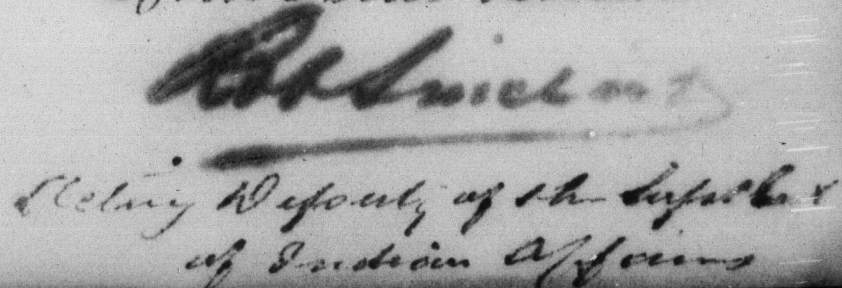 Rob Sinclair
Acting Deputy of the Supt Genl
of Indian Affairs